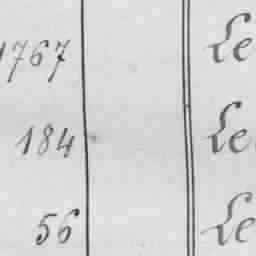 1767 Le
184 Le
56 Le